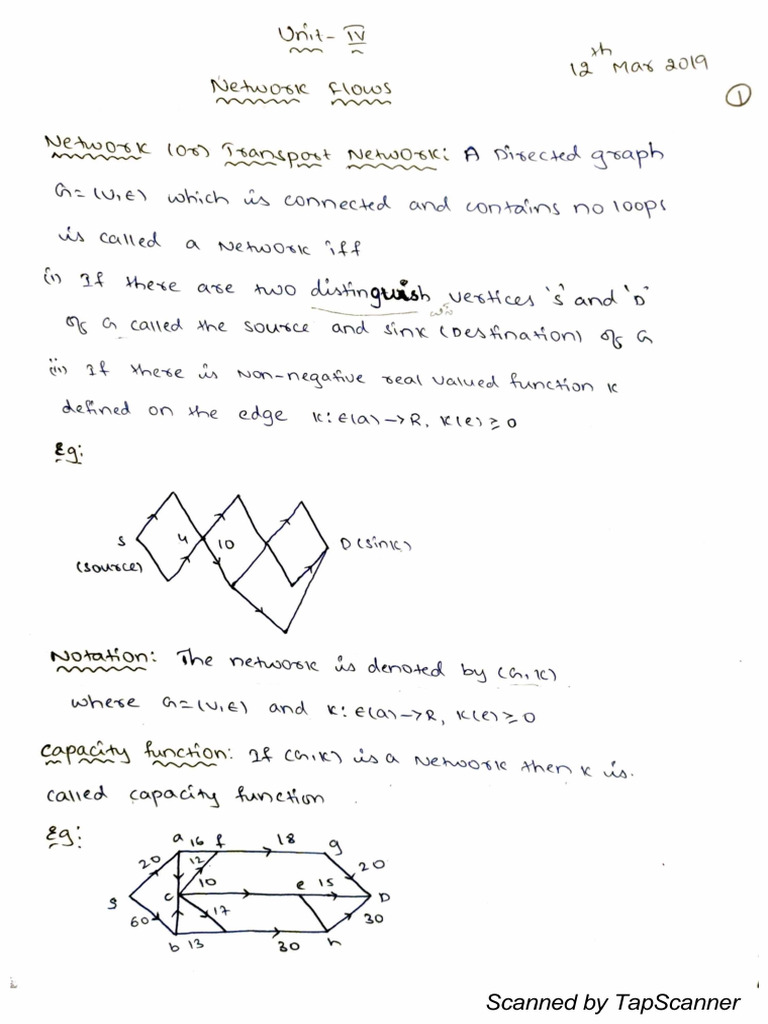 Unit - IV
12th Mar 2019
Network Flows
1
Network (or) Transport Network: A Directed graph
G=(V,E) which is connected and contains no loops
is called a Network iff
(i) If there are two distinguish vertices 's' and 'D'
of G called the source and sink (Destination) of G
(ii) If there is Non-negative real valued function K
defined on the edge K:E(G)→R, K(e)≥0
Eg:
S 4 10 D (sink)
(source)
Notation: The network is denoted by (G,K)
where G=(V,E) and K:E(G)→R, K(e)≥0
Capacity function: If (G,K) is a Network then K is
called capacity function
Eg:
a 16 f 18 g
20 12 20
c 10 e 15 D
S 17
60 30
b 13 30 h
Scanned by TapScanner